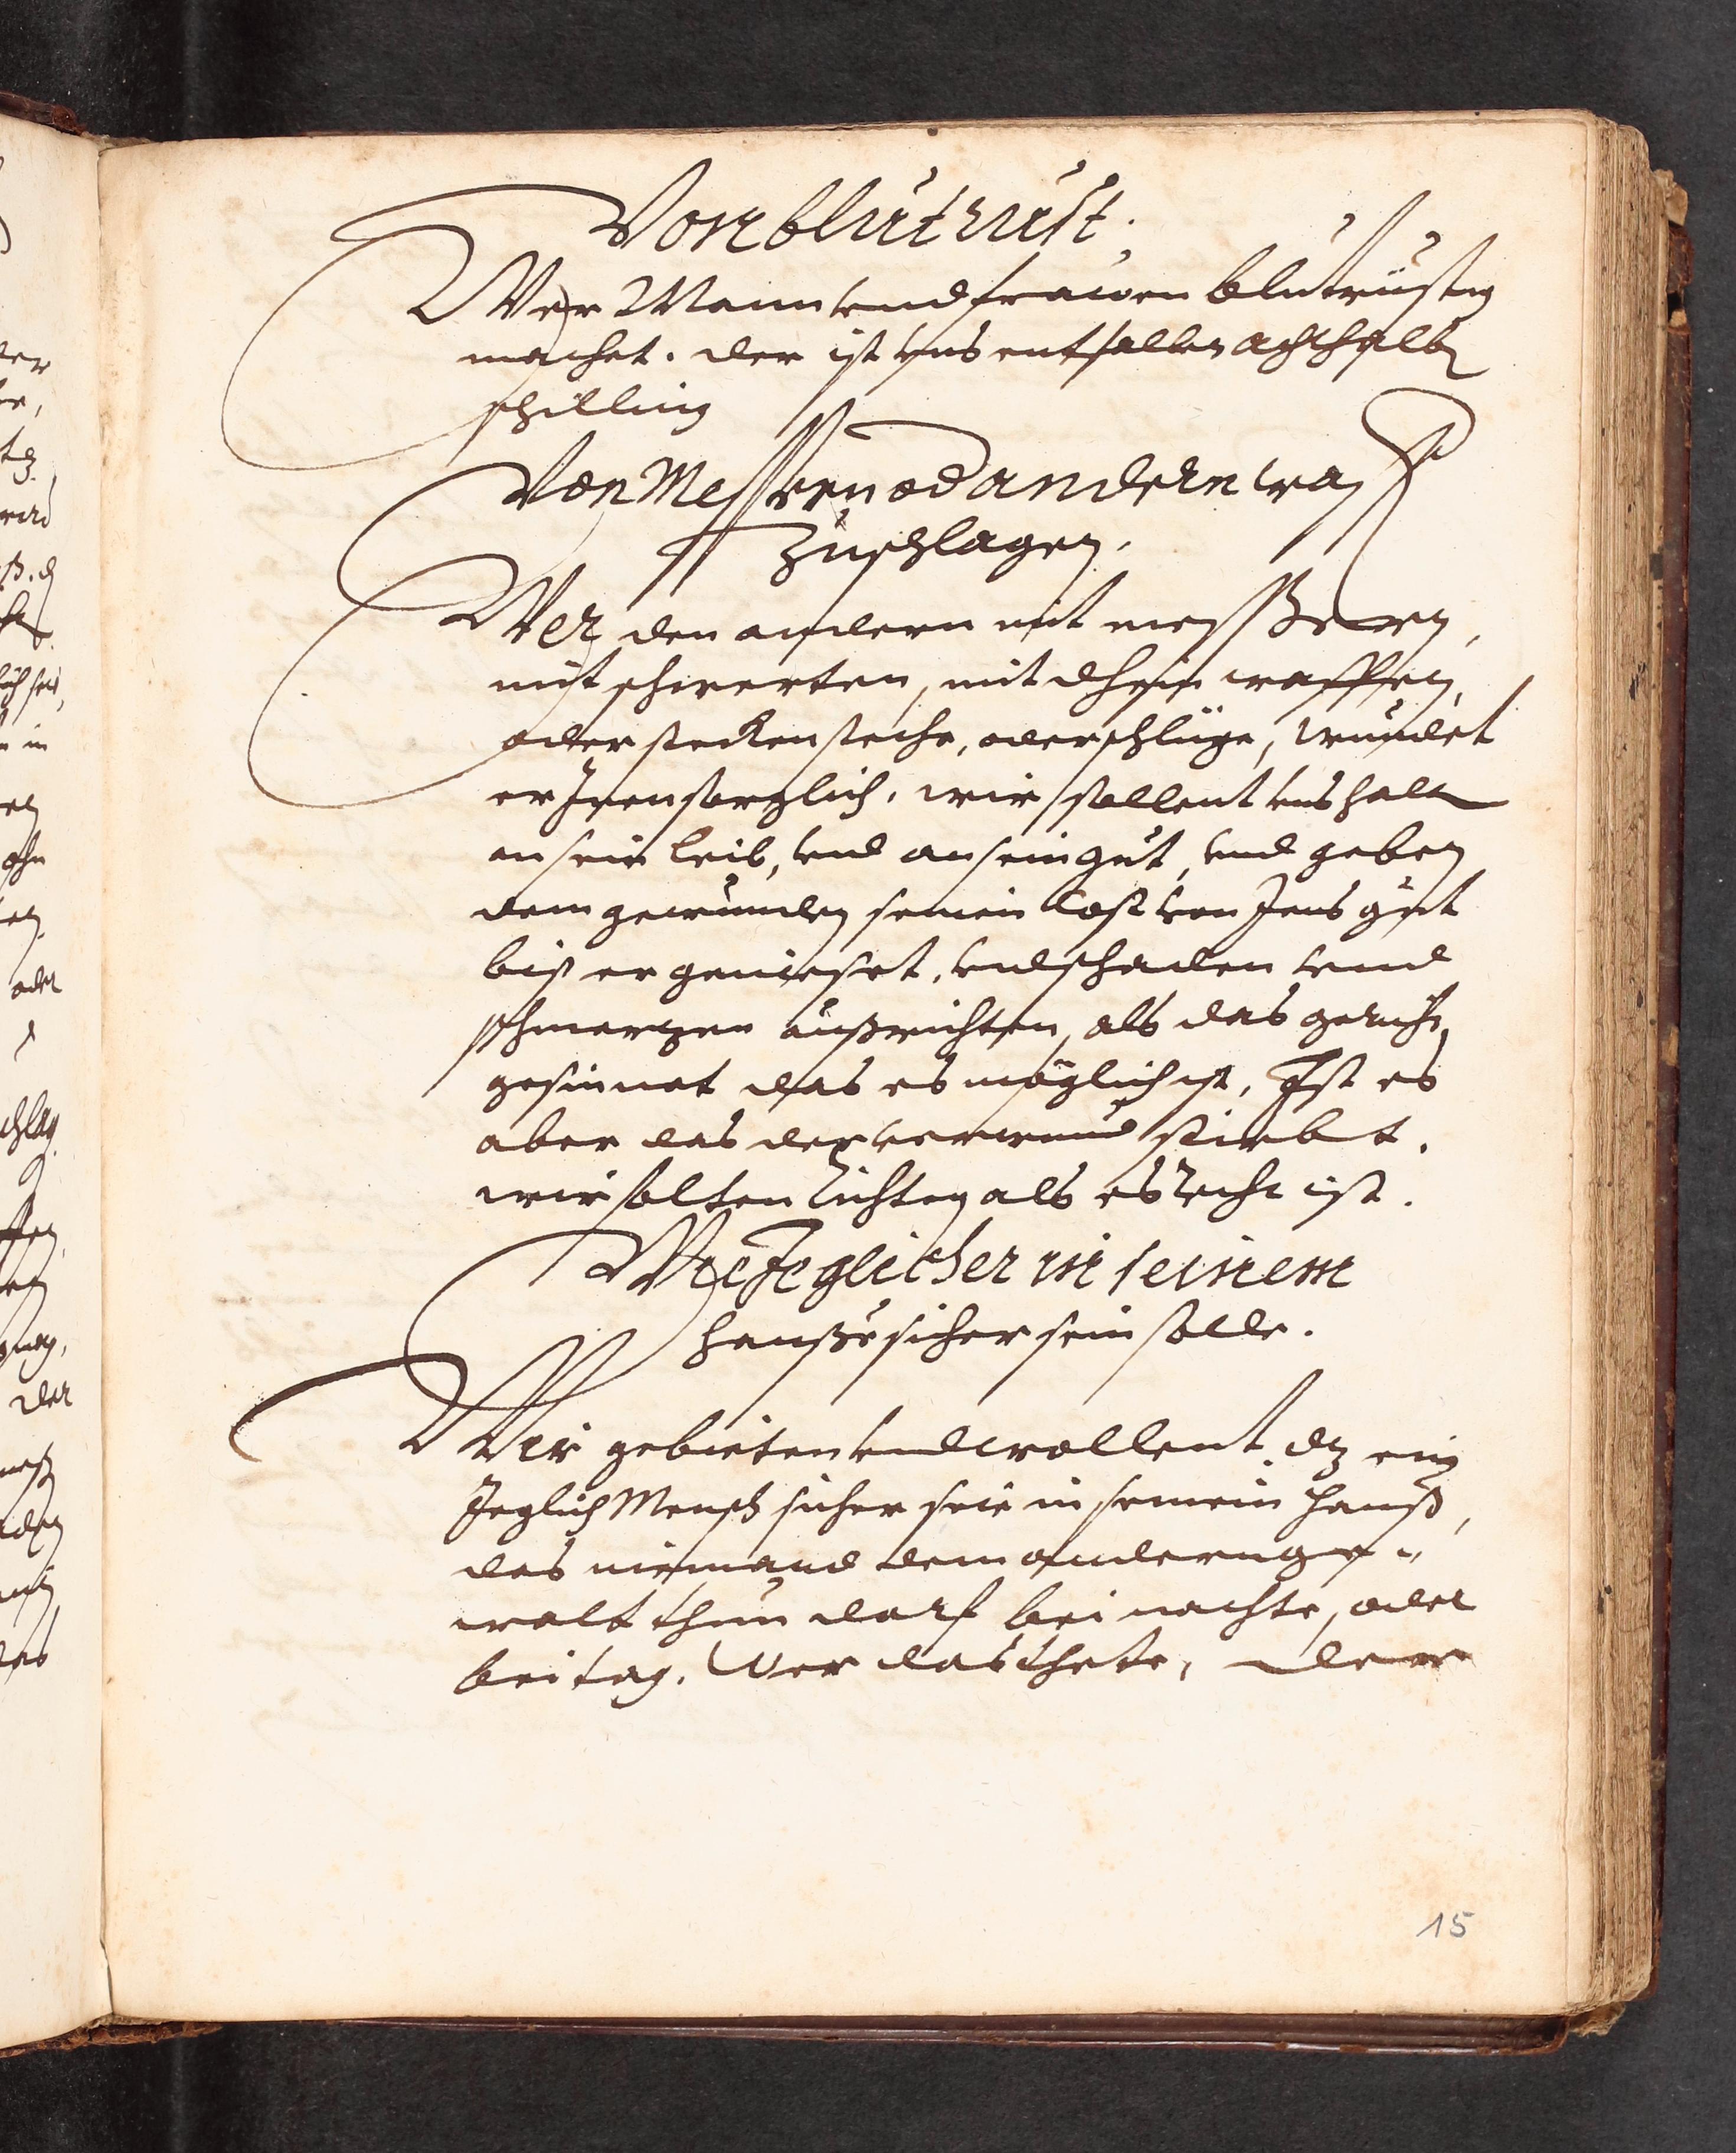 Von blutrust.
Wer Mann vnd frawen blutrüstig
machet. der ist vns entfallen achthalb
schilling
Von Messern od andern waf
zuschlagen.
Wer den andern mit messern,
mit schwerten, mit dhein waffen,
oder stecken steche, oder schlüge, wundet
er Jnen sorglich, wir sollent vns halten
an sein leib, vnd an sein gut, vnd geben
dem gewunden seinen Cost von Jens gut
biß er genieset, vnd schaden vnd
schmerzen außrichten, als das gericht
gesinnet das es möglich ist, Ist es
aber das der verwund stirbet.
wir solten richten als es recht ist.
Wie Jeglicher in seinem
hauße sicher sein solle.
Wir gebieten vnd wollent dz ein
Jeglich Mensch sicher seie in seinem hauß,
das niemand dem andern ge-
walt thun darf bei nachte, oder
bei tag. Wer das thete, der
15